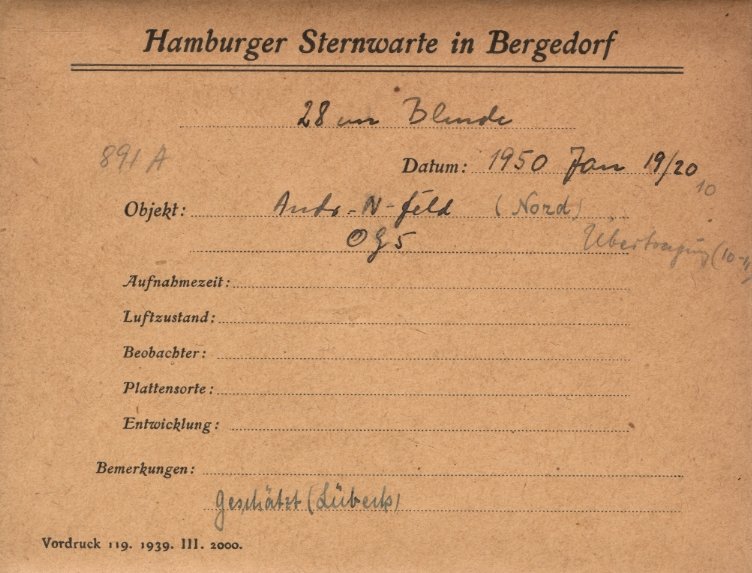 Hamburger Sternwarte in Bergedorf
28 cm Blende
891 A
Datum: 1950 Jan 19/20
10
Objekt: Andr-N-feld (Nord)
OG5 Übertragung (10-
Aufnahmezeit:
Luftzustand:
Beobachter:
Plattensorte:
Entwicklung:
Bemerkungen:
geschätzt (Lübeck)
Vordruck 119. 1939. III. 2000.